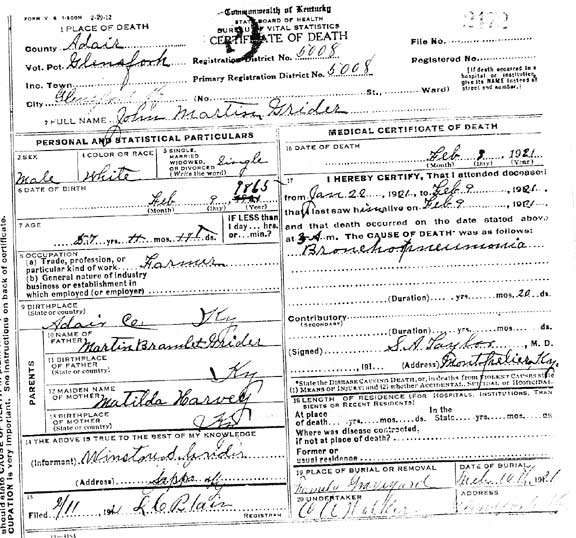 FORM V S 1-500M 2-29-12
Commonwealth of Kentucky
STATE BOARD OF HEALTH
BUREAU OF VITAL STATISTICS
CERTIFICATE OF DEATH
1 PLACE OF DEATH
County Adair
Vot. Pct. Glensfork
Inc. Town
City
Registration District No. 5008
Primary Registration District No. 5008
File No.
Registered No.
(No. St., Ward)
(If death occurred in a hospital or institution, give its NAME instead of street and number.)
2 FULL NAME John Martin Grider
PERSONAL AND STATISTICAL PARTICULARS
3 SEX
Male
4 COLOR OR RACE
White
5 SINGLE, MARRIED, WIDOWED, OR DIVORCED (Write the word)
Single
6 DATE OF BIRTH
Feb 9 1865
(Month) (Day) (Year)
7 AGE
yrs. mos. ds.
IF LESS than 1 day... hrs. or...min.?
8 OCCUPATION
(a) Trade, profession, or particular kind of work Farmer
(b) General nature of industry business or establishment in which employed (or employer)
9 BIRTHPLACE
(State or country)
Adair Co. Ky
PARENTS
10 NAME OF FATHER
Martin Bramlet Grider
11 BIRTHPLACE OF FATHER
(State or country)
Ky
12 MAIDEN NAME OF MOTHER
Matilda Harvey
13 BIRTHPLACE OF MOTHER
(State or country)
Ky
14 THE ABOVE IS TRUE TO THE BEST OF MY KNOWLEDGE
(Informant) Winston S. Grider
(Address) Ky
15
Filed 2/11, 191 L C Blair
REGISTRAR
MEDICAL CERTIFICATE OF DEATH
16 DATE OF DEATH
Feb 9 1921
(Month) (Day) (Year)
17 I HEREBY CERTIFY, That I attended deceased
from Jan 20 1921, to Feb 9 1921
that I last saw him alive on Feb 9, 1921
and that death occurred on the date stated above
at m. The CAUSE OF DEATH was as follows:
Bronchopneumonia
(Duration) yrs. mos. 20 ds.
Contributory
(SECONDARY)
(Duration) yrs. mos. ds.
(Signed) S.A. Taylor, M. D.
, 191 (Address) Montpelier Ky
*State the DISEASE CAUSING DEATH, or, in deaths from VIOLENT CAUSES state (1) MEANS OF INJURY; and (2) whether ACCIDENTAL, SUICIDAL OR HOMICIDAL.
18 LENGTH OF RESIDENCE (FOR HOSPITALS, INSTITUTIONS, TRANSIENTS OR RECENT RESIDENTS)
At place of death yrs. mos. ds. In the State yrs. mos. ds.
Where was disease contracted, if not at place of death?
Former or usual residence
19 PLACE OF BURIAL OR REMOVAL
Family Graveyard
DATE OF BURIAL
Feb 10, 1921
20 UNDERTAKER
Walker
ADDRESS
should state CAUSE OF DEATH
CUPATION is very important. See instructions on back of certificate.